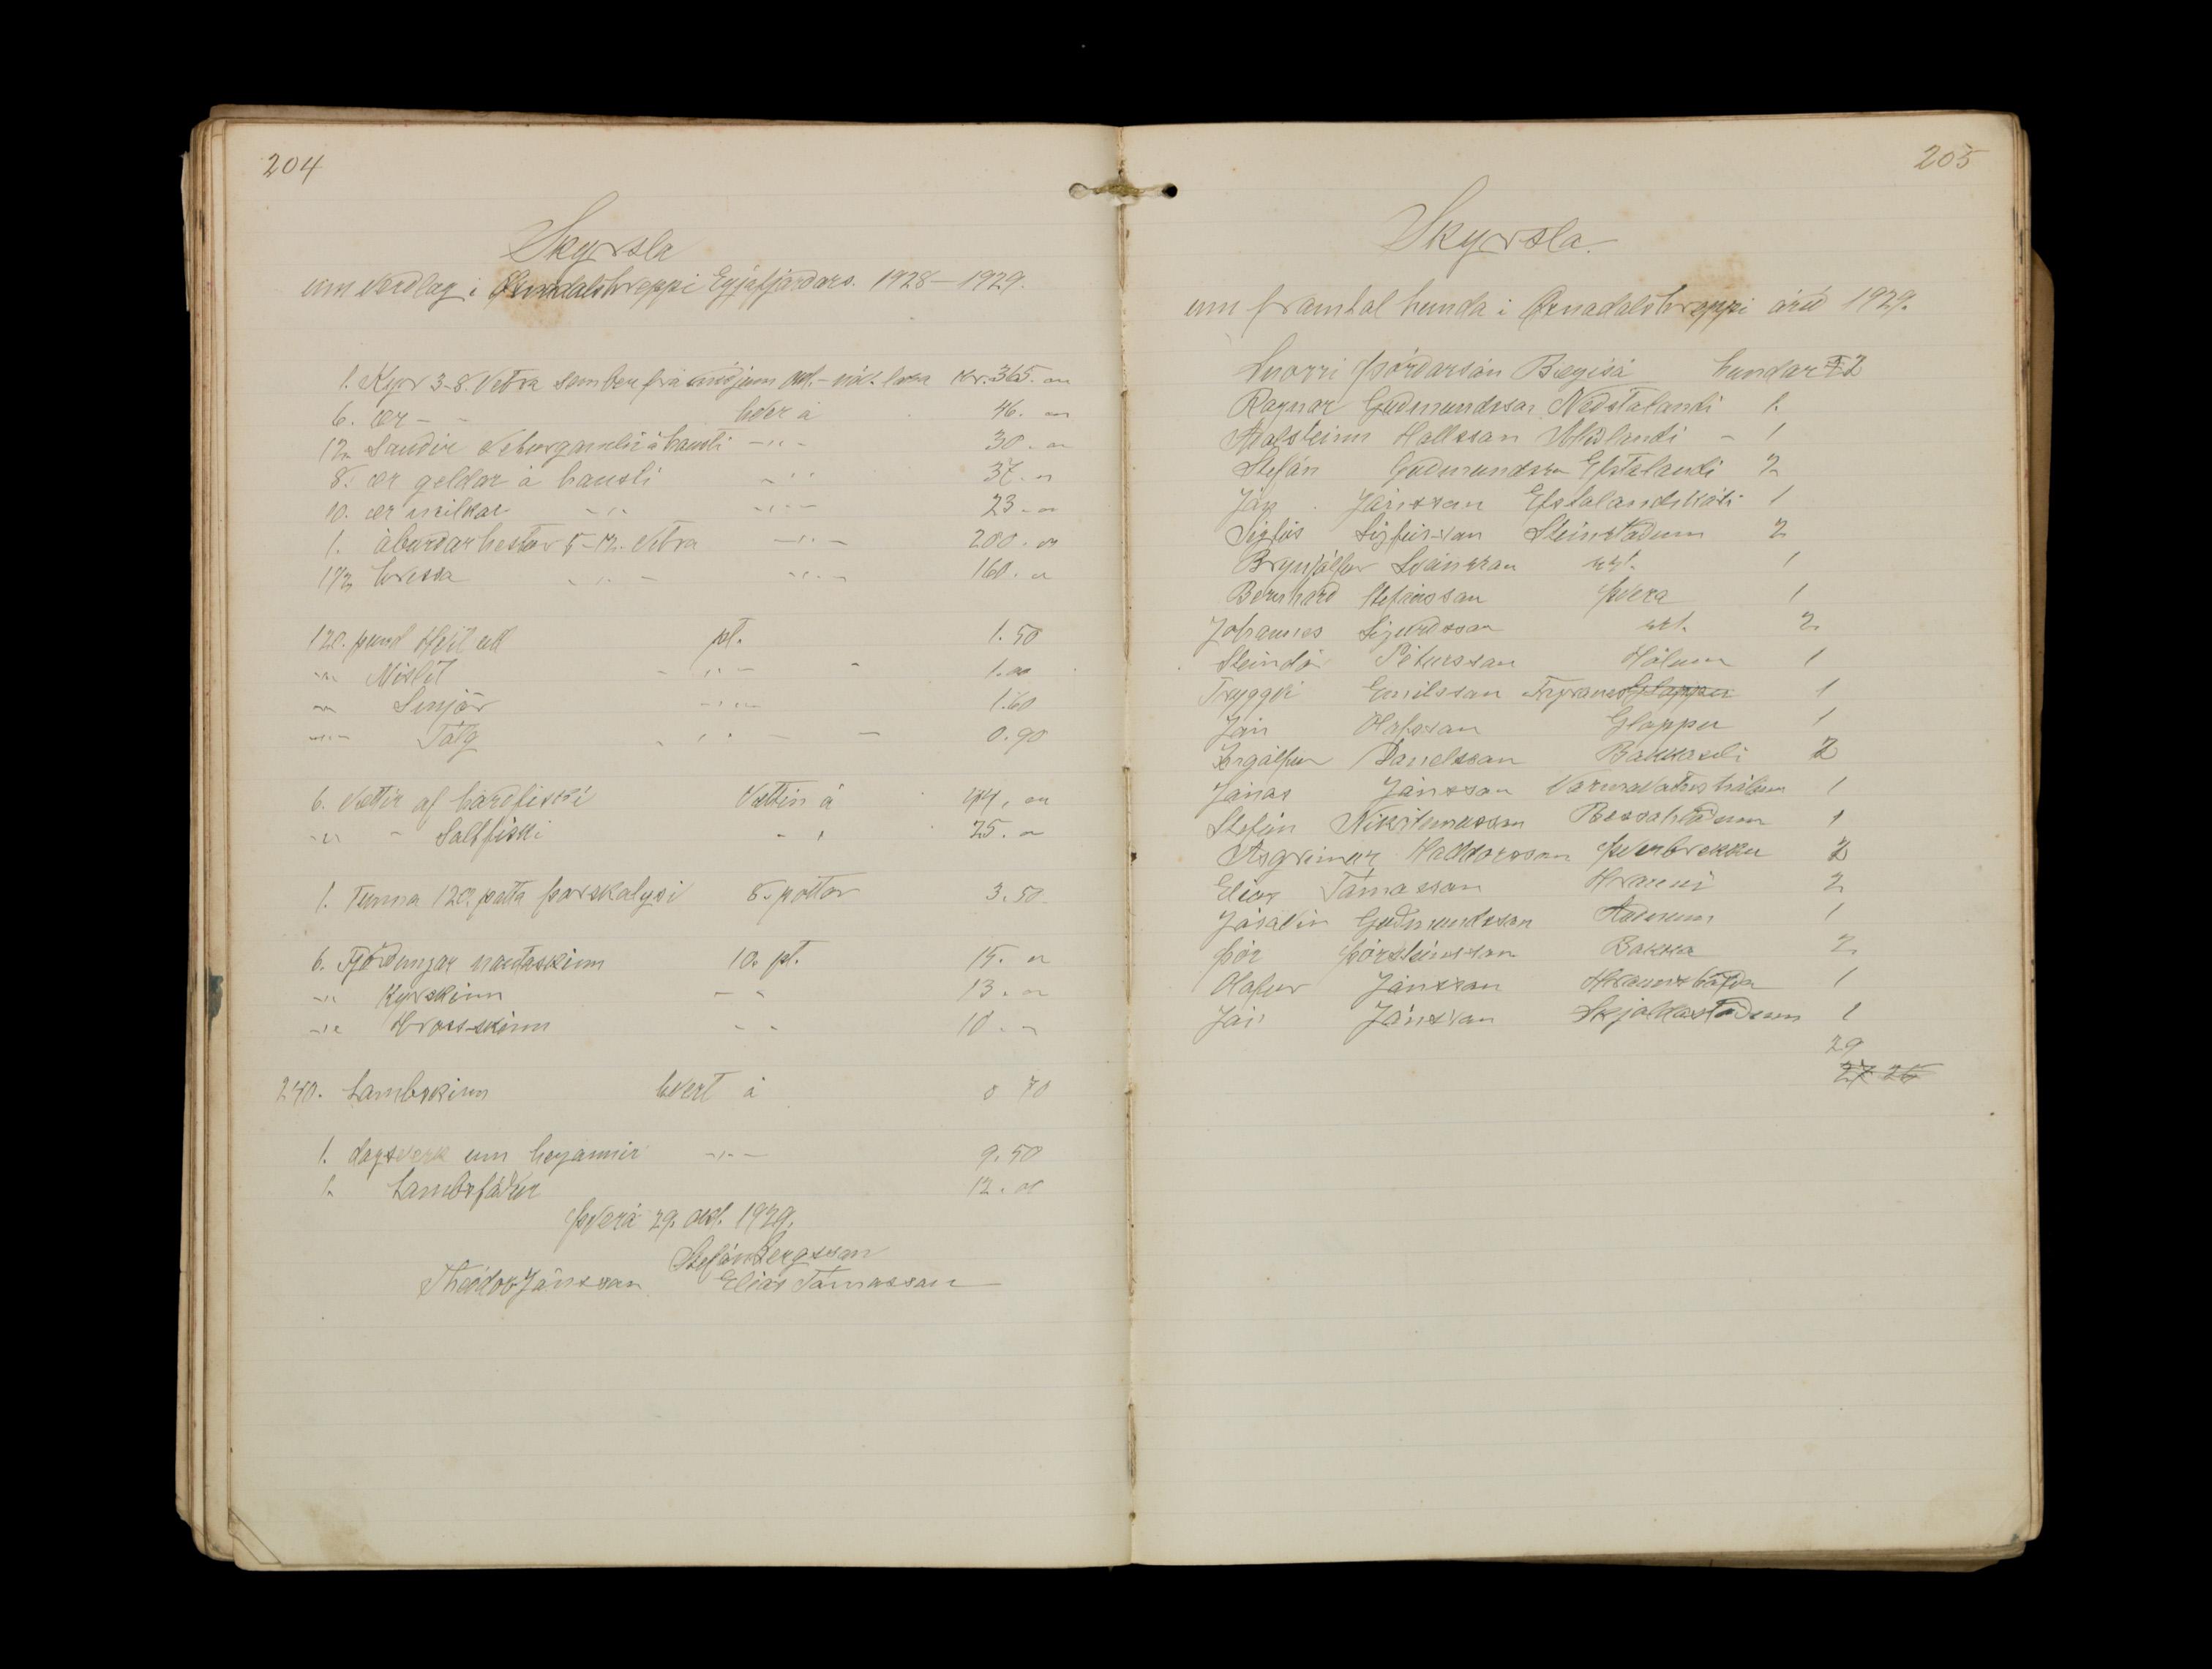 204
Skyrsla
um verdlag i Öxnadalshreppi Eyjafjardars. 1928-1929.
1. Kyr 3-8. vetra sem ber frá midjum okt. - nóv. loka Kr. 365. oo
6. ær - - hver á 46. oo
12 Saudir veturgamlir á hausti -"- 30. oo
8. ær geldar á hausti -"- 37. oo
10. ær milkar -"- -"- 23. oo
1. áburdarhestur 5-12. vetra -"- 200. oo
1 1/2 hrossa -"- -"- 160. oo
120. pund Hvít ull pt. 1.50
-"- Mislit -"- 1.00
-"- Smjör -"- 1.60
-"- Tólg -"- 0.90
6. Vættir af hardfiski Vættin á 44. oo
-"- - Saltfiski - " 25. oo
1. Tunna 120. potta þorskalysi 8. pottar 3.50
6. Fjórdungar nautaskinn 10. pt. 15. oo
-"- Kyrskinn - " 13. oo
-"- Hross-skinn - - 10. oo
240. Lambskinn hvert á 0 70
1. dagsverk um heyannir -"- 9.50
1. Lambsfódur 12. oo
þverá 29. okt. 1929.
Stefán Bergsson
Theódor Jónsson Elias Tómasson
205
Skyrsla.
um framtal hunda i Öxnadalshreppi árid 1929.
Snorri þórdarson Bægisá hundar 2
Ragnar Gudmundsson Nedstalandi 1.
Adalsteinn Hallsson Midlandi - 1
Stefán Gudmundsson Efstalandi 2
Jón Jónsson Efstalandskoti 1
Sigfús Sigfússon Steinstödum 2
Brynjólfur Sveinsson sst. 1
Bernhard Stefánsson þvera 1
Johannes Sigurdsson sst. 2
Steindór Pétursson Hólum 1
Tryggvi Emilsson Gloppu 1
Jón Olafsson Gloppu 1
Ingólfur Danelsson Bakkaseli 2
Jónas Jónsson Varmavatnshólum 1
Stefán Nikódemusson Bessahlödum 1
Asgrimur Halldorsson þverbrekku 2
Elias Tómasson Hrauni 2
Jósavin Gudmundsson Audnum 1
þór þórsteinsson Bakka 2
Olafur Jónsson Hraunshöfda 1
Jón Jónsson Skjaldastödum 1
29
27 26